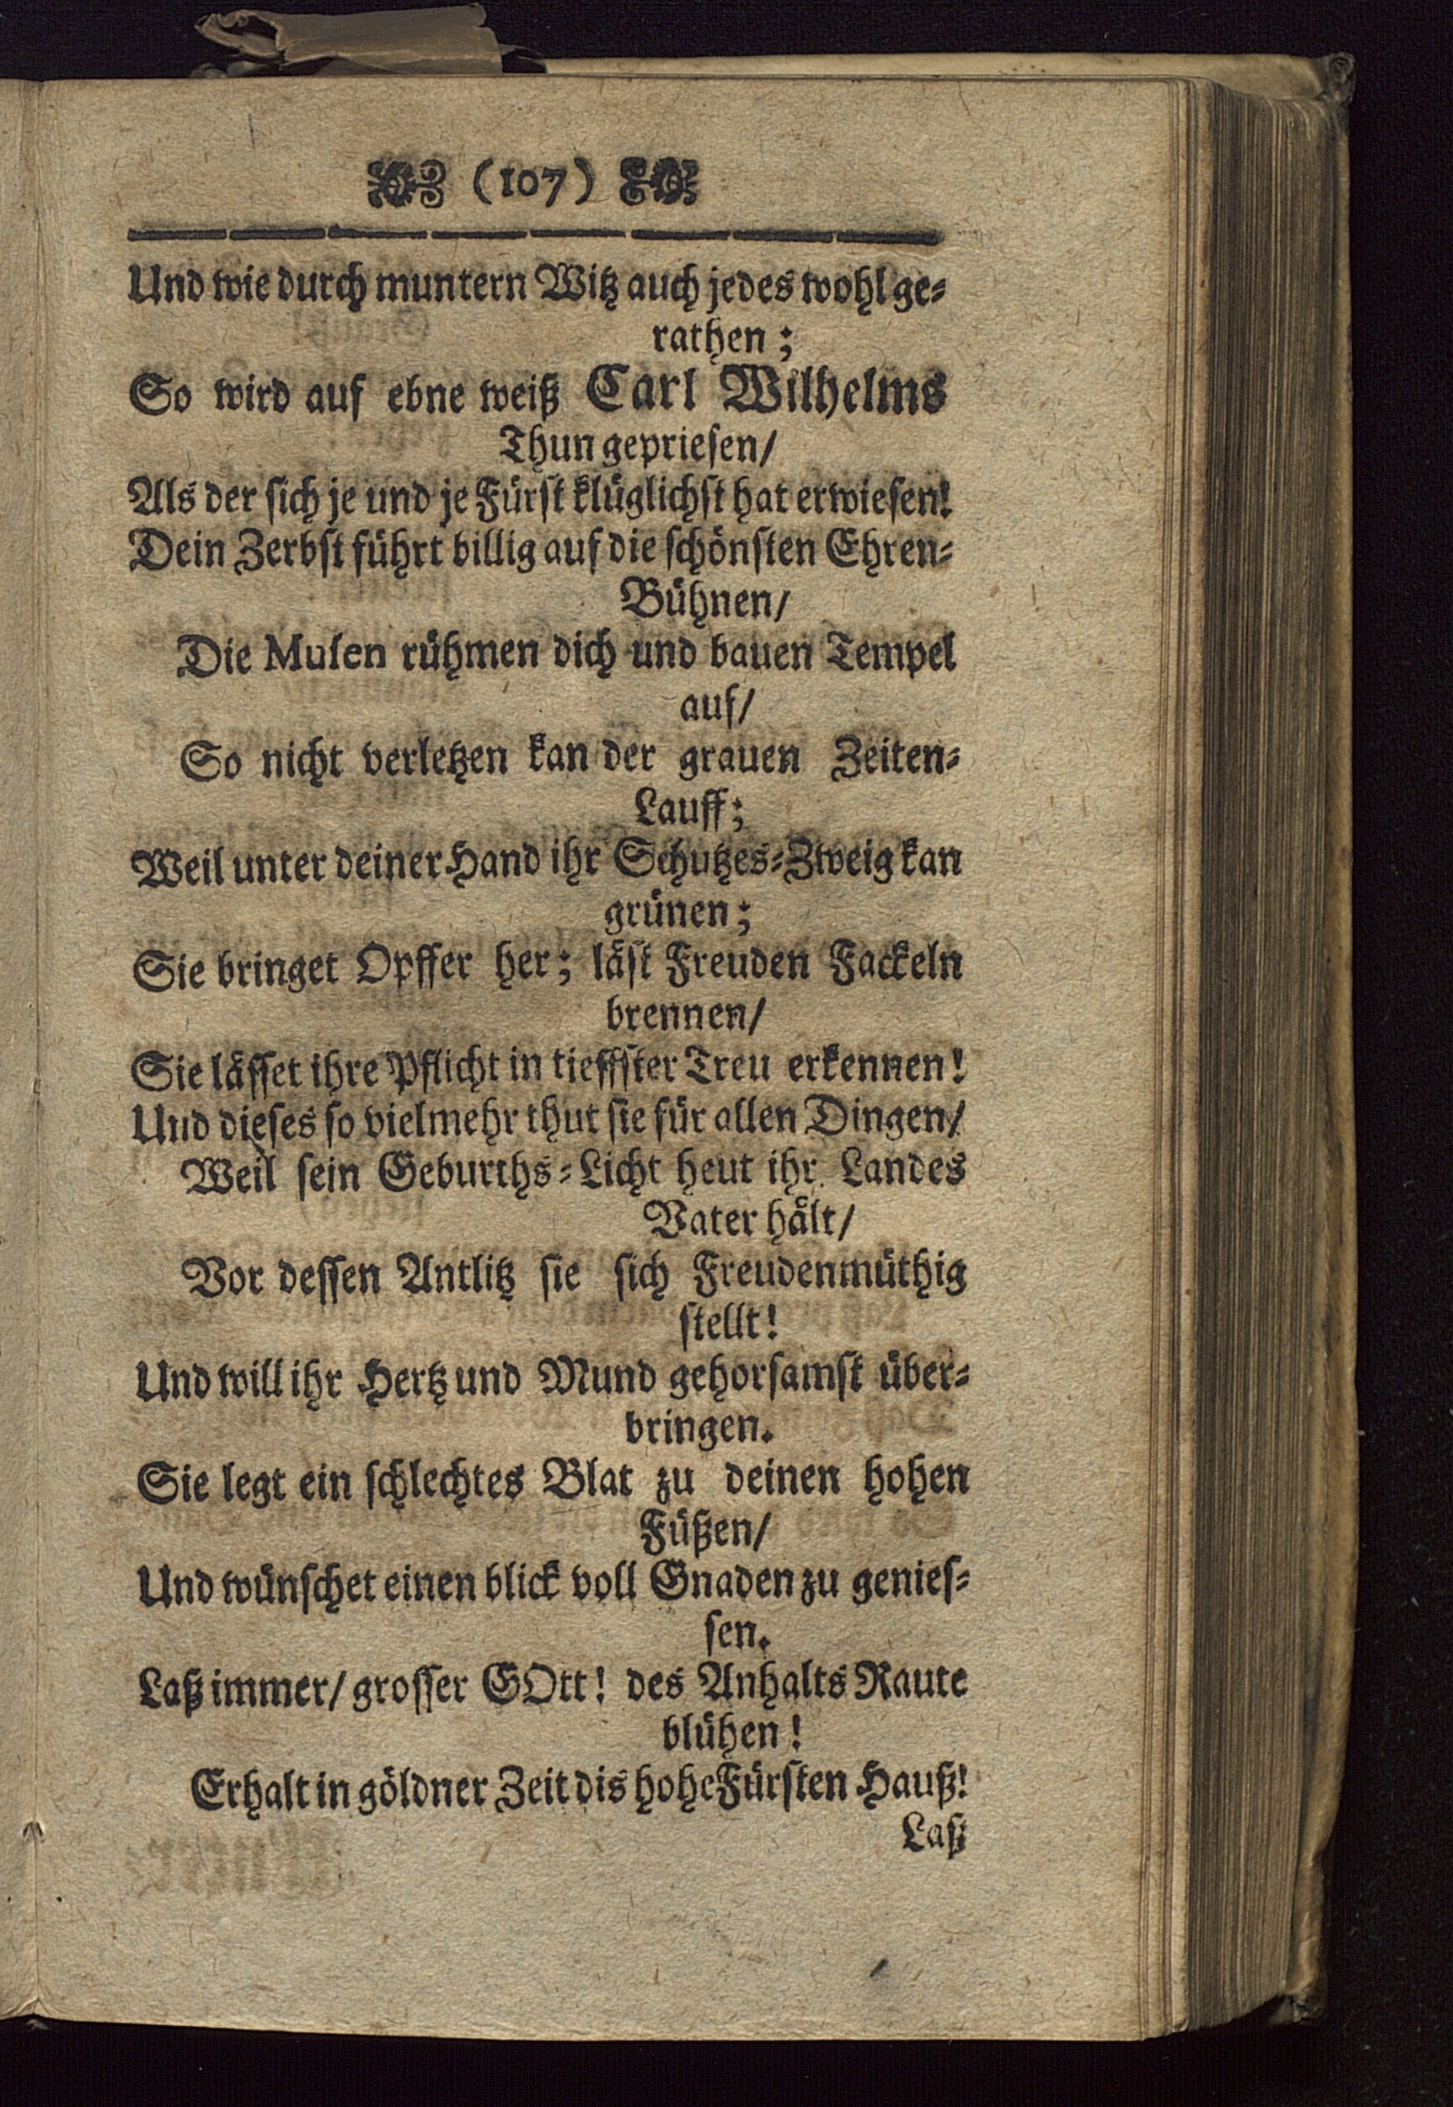 (107)
Und wie durch muntern Witz auch jedes wohl ge-
rathen;
So wird auf ebne weiß Carl Wilhelms
Thun gepriesen/
Als der sich je und je Fürst klüglichst hat erwiesen!
Dein Zerbst führt billig auf die schönsten Ehren-
Bühnen/
Die Musen rühmen dich und bauen Tempel
auf/
So nicht verletzen kan der grauen Zeiten-
Lauff;
Weil unter deiner Hand ihr Schutzes-Zweig kan
grünen;
Sie bringet Opffer her; läst Freuden Fackeln
brennen/
Sie lässet ihre Pflicht in tieffster Treu erkennen!
Und dieses so vielmehr thut sie für allen Dingen/
Weil sein Geburths-Licht heut ihr Landes
Vater hält/
Vor dessen Antlitz sie sich Freudenmüthig
stellt!
Und will ihr Hertz und Mund gehorsamst über-
bringen.
Sie legt ein schlechtes Blat zu deinen hohen
Füßen/
Und wünschet einen blick voll Gnaden zu genies-
sen.
Laß immer/ grosser GOtt! des Anhalts Raute
blühen!
Erhalt in göldner Zeit dis hohe Fürsten Hauß!
Laß